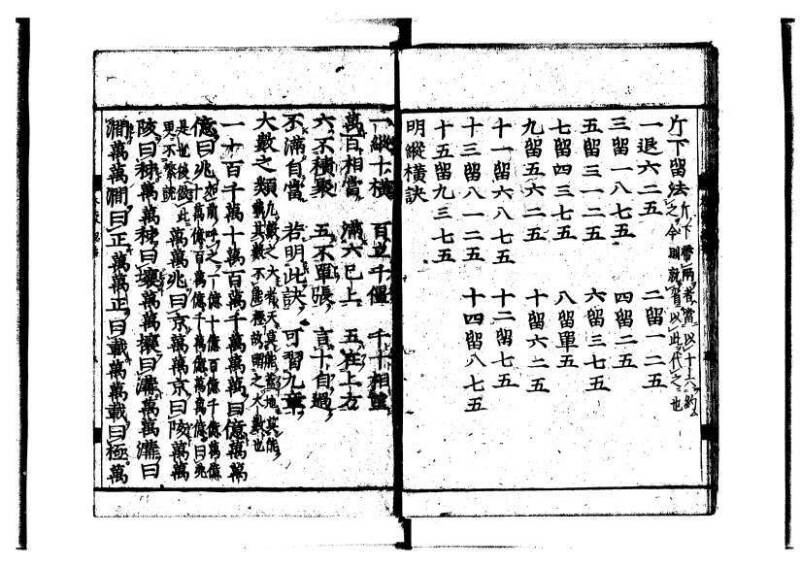 斤下留法 斤下帶兩者當以十六約
之今則就省以此代之也
一退六二五 二留一二五
三留一八七五 四留二五
五留三一二五 六留三七五
七留四三七五 八留單五
九留五六二五 十留六二五
十一留六八七五 十二留七五
十三留八一二五 十四留八七五
十五留九三七五
明縱橫訣
一縱十橫 百立千僵 千十相望
萬百相當 滿六已上 五在上方
六不積聚 五不單張 言十自過
不滿自當 若明此訣 可習九章
大數之類 凡數之大者天莫能蓋地莫能
載其數不能極故謂之大數也
一十百千萬十萬百萬千萬萬萬曰億萬萬
億曰兆
萬萬兆曰京萬萬京曰陔萬萬
陔曰秭萬萬秭曰壤萬萬壤曰溝萬萬溝曰
澗萬萬澗曰正萬萬正曰載萬萬載曰極萬